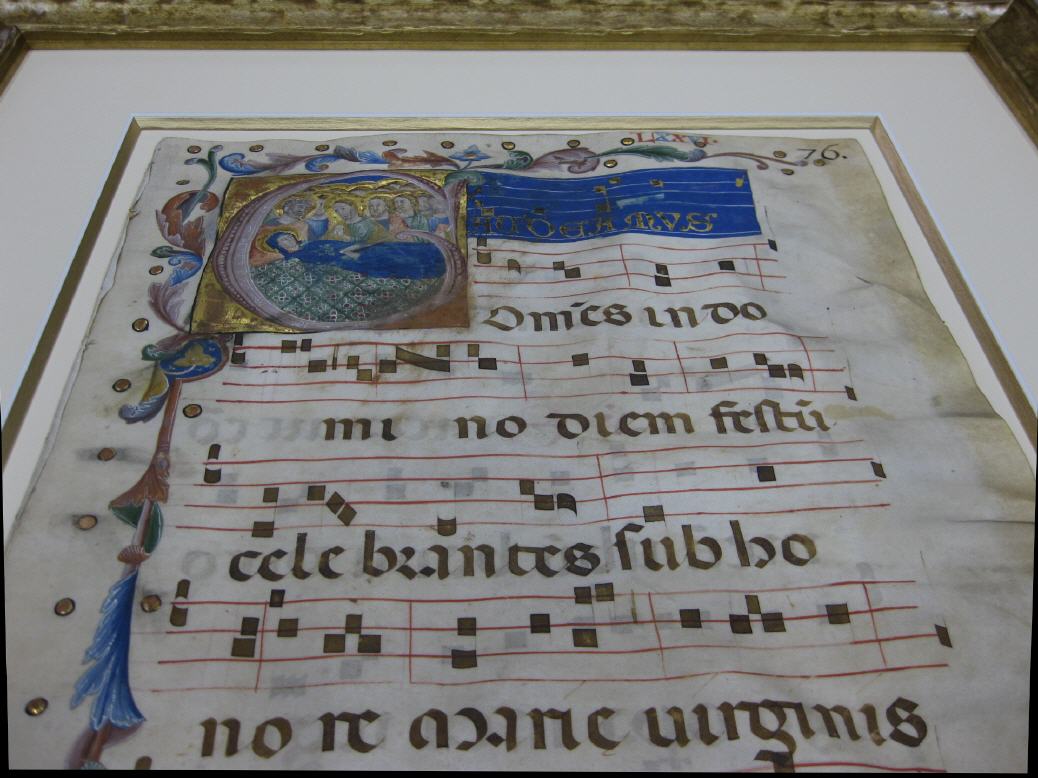 LXXVI. 76.
GAVDEAMVS
Om̄es in do
mi no diem festū
cele brantes sub ho
no re Marie uirginis